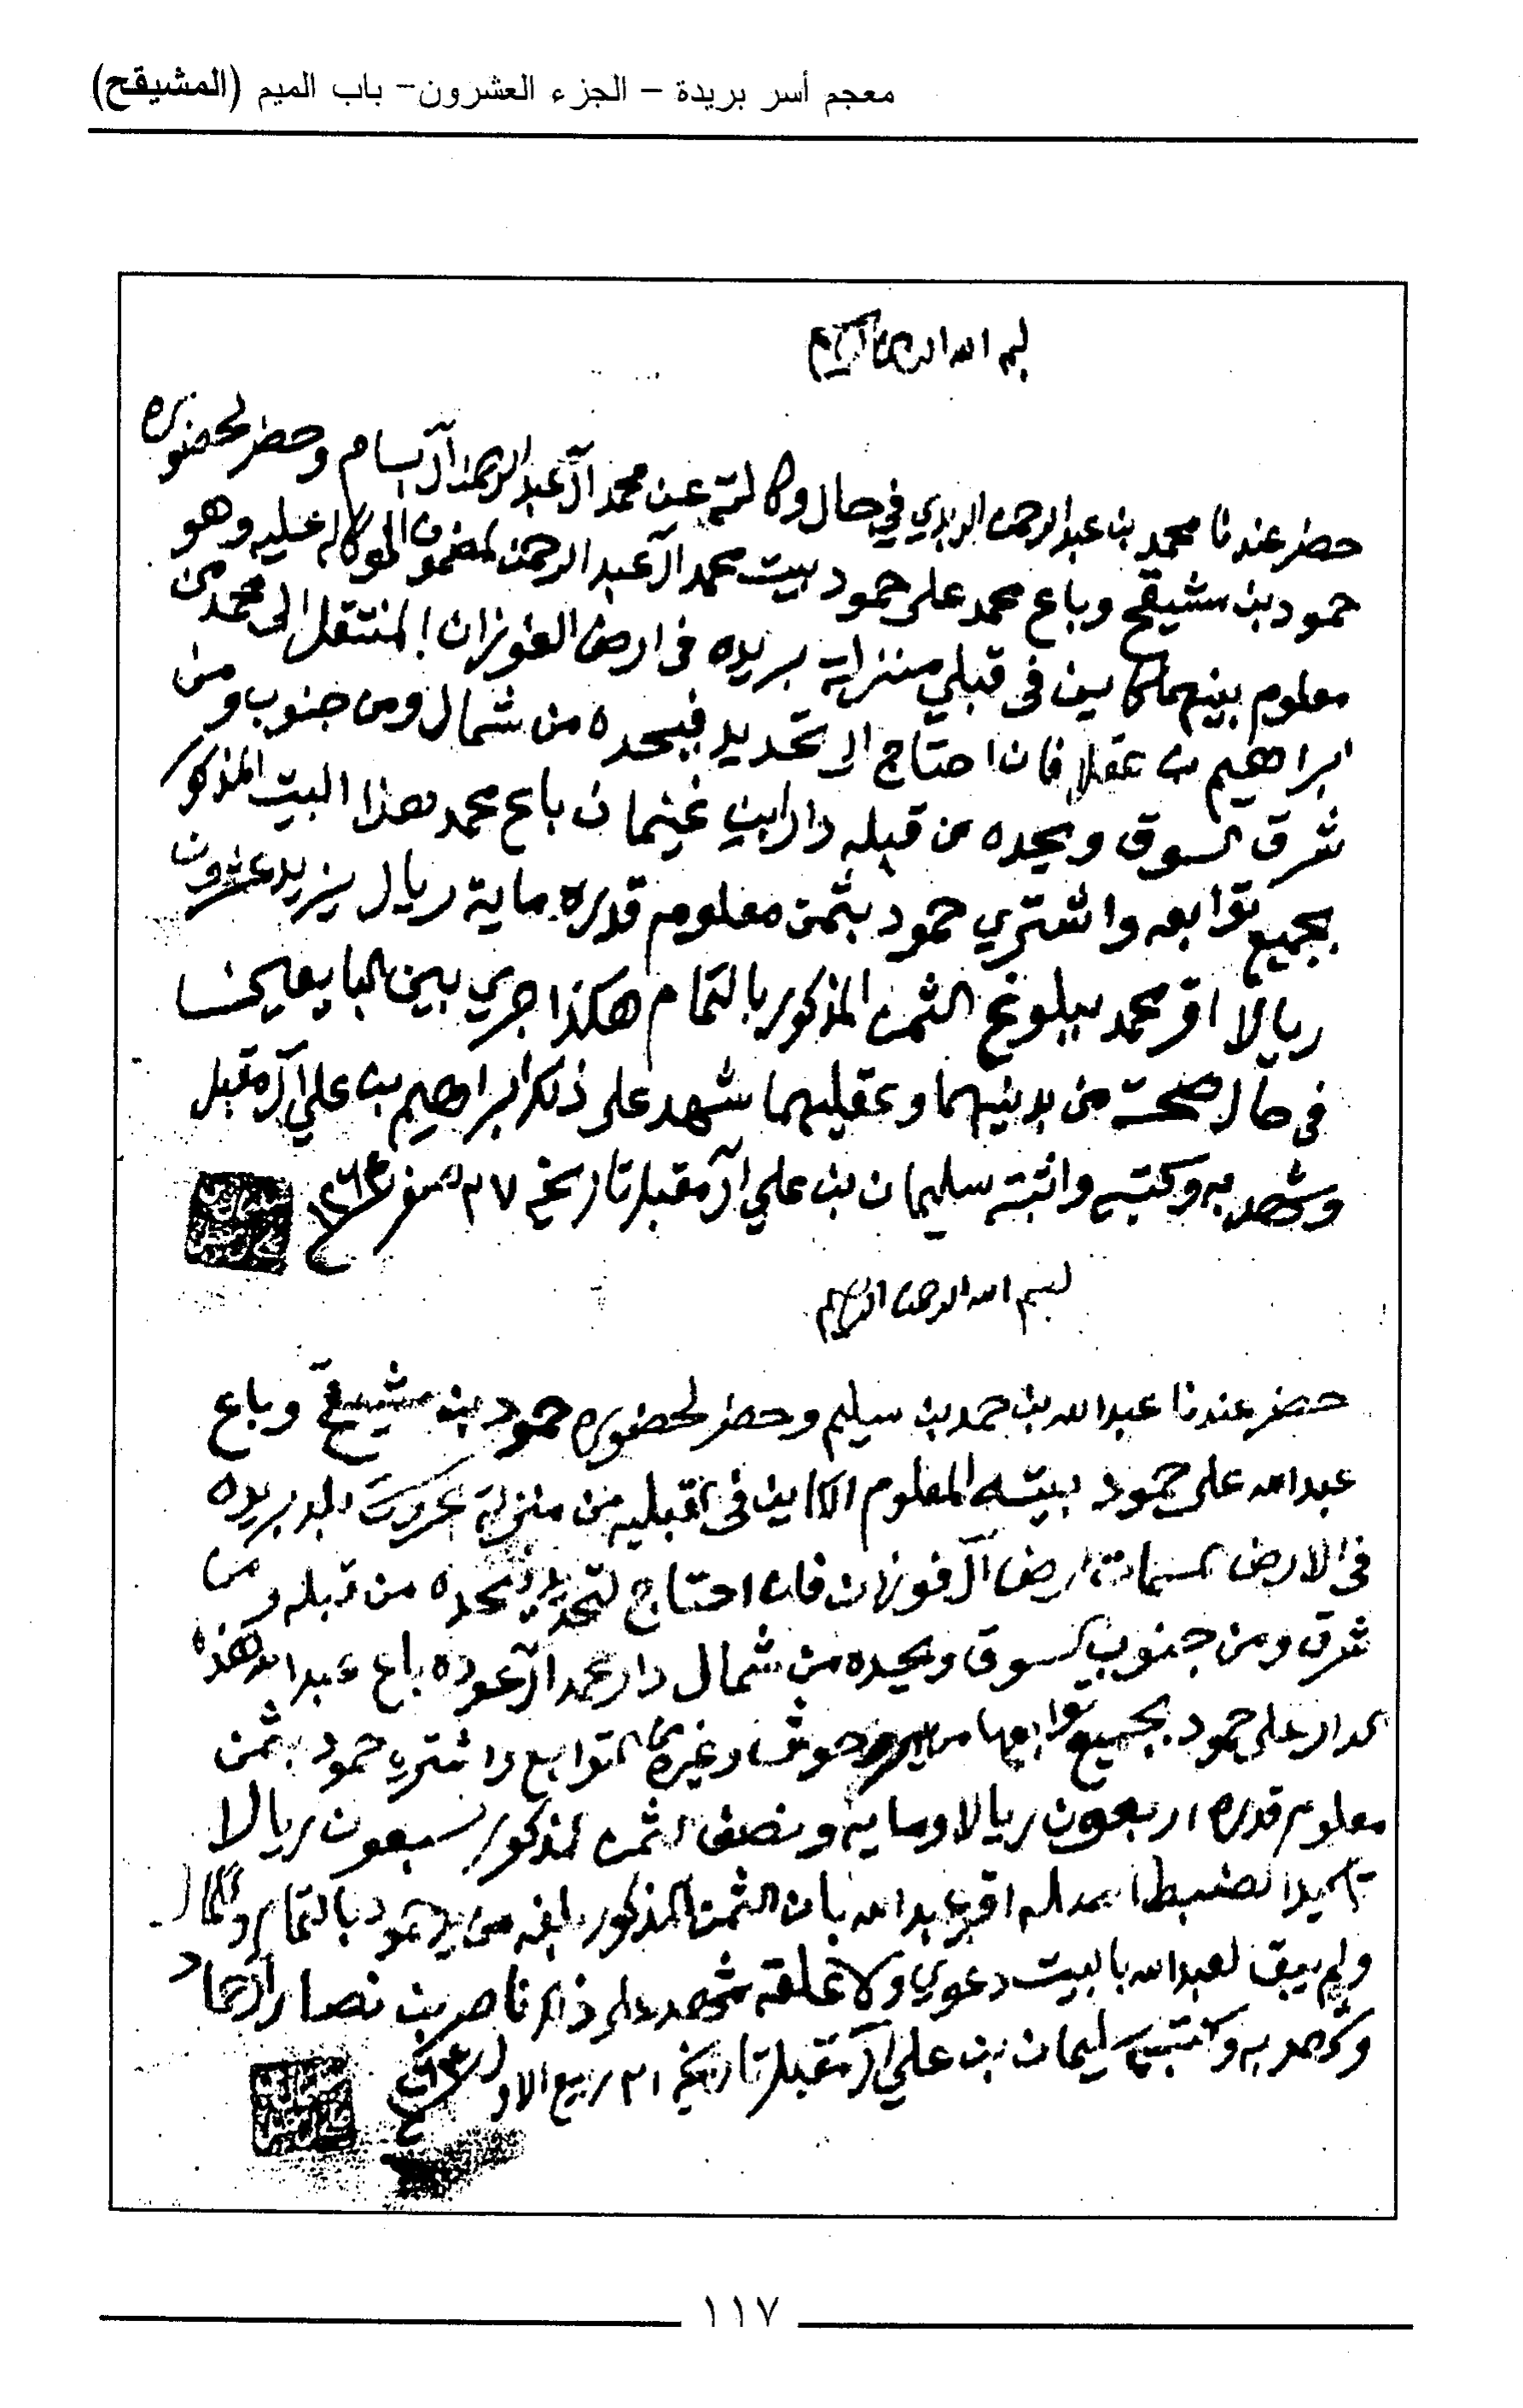 معجم أسر بريدة - الجزء العشرون- باب الميم (المشيقح)
بسم الله الرحمن الرحيم
حضر عندنا محمد بن عبدالرحمن الربدي في حال وكالته عن محمد آل عبدالرحمن آل بسام وحضر لحضوره
حمود بن مشيقح وباع محمد على حمود بيت محمد آل عبدالرحمن المضمون الموكاله عليه وهو
معلوم بينهما كاين في قبلي منزلة بريده في ارض الفوزان المنتقل الى محمد من
ابراهيم بن عقلا فان احتاج الى تحديد فيحده من شمال ومن جنوب ومن
شرق السوق ويحده من قبله دار ابن غنيمان باع محمد هذا البيت المذكور
بجميع توابعه واشتري حمود بثمن معلوم قدره ماية ريال يزيد عشرون
ريالا اقر محمد ببلوغ الثمن المذكور بالتمام هكذا جري بين البايعين
في حال صحت من بدنيهما وعقليهما شهد على ذلك ابراهيم بن علي آل مقبل
وشهد به وكتبه واثبته سليمان بن علي آل مقبل تاريخ ٢٧ صفر ١٢٦٣
بسم الله الرحمن الرحيم
حضر عندنا عبدالله بن حمد بن سليم وحضر لحضوره حمود بن مشيقح وباع
عبدالله على حمود بيته المعلوم الكاين في قبليه من منزلة بلد بريده
في الارض المسمات ارض آل فوزان فان احتاج لتحديد فيحده من قبله ومن
شرق ومن جنوب السوق ويحده من شمال دار حمد آل عوده باع عبدالله هذا
الدار على حمود بجميع توابعها من حوش وغيره من التوابع واشترى حمود بثمن
معلوم قدره اربعون ريالا وماية ونصف الثمن المذكور سبعون ريالا
تاكيدا لضبط اقر عبدالله بان الثمن المذكور بلغه من يد حمود بالتمام والكمال
ولم يبق لعبدالله بالبيت دعوي ولا علقة شهد على ذلك ناصر بن
وشهد به وكتبه سليمان بن علي آل مقبل تاريخ ٢١ ربيع الاول ١٢٦٣
١١٧